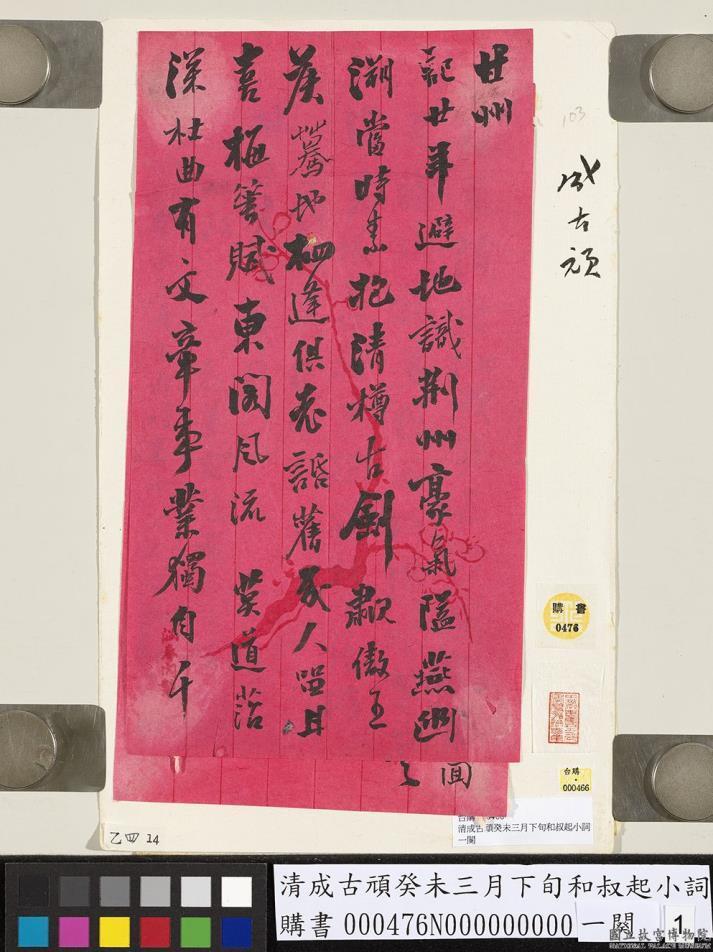 甘州
記廿年避地識荆州豪氣隘燕幽
溯當時素抱清樽古劍歗傲王
矦驀地相逢俱老話舊幾人留且
喜梅賦東閣風流 莫道菭
深杜曲有文章事業獨自千
成古頑
103
購書
0476
台購
000466
清成古頑癸未三月下旬和叔起小詞
一闋
乙四 14
清成古頑癸未三月下旬和叔起小詞
購書 000476N000000000 一闋 1
國立故宮博物院
NATIONAL PALACE MUSEUM